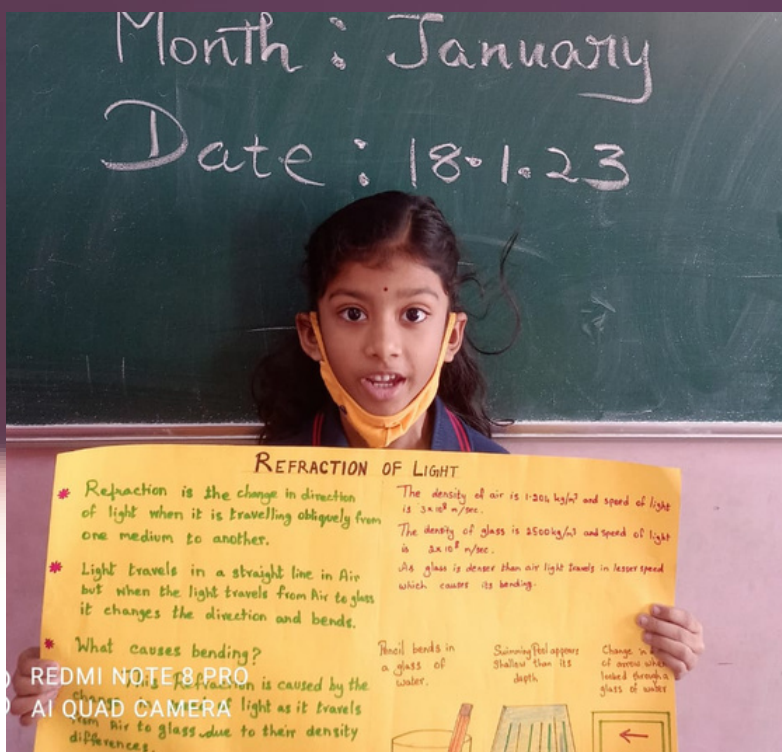 Month : January
Date : 18.1.23
REFRACTION OF LIGHT
* Refraction is the change in direction
of light when it is travelling obliquely from
one medium to another.
* Light travels in a straight line in Air
but when the light travels from Air to glass
it changes the direction and bends.
* What causes bending?
This Refraction is caused by the
change in of light as it travels
from Air to glass due to their density
differences.
The density of air is 1.204 kg/m³ and speed of light
is 3x10⁸ m/sec.
The density of glass is 2500 kg/m³ and speed of light
is 2x10⁸ m/sec.
As glass is denser than air light travels in lesser speed
which causes its bending.
Pencil bends in
a glass of
water.
Swimming Pool appears
Shallow than its
depth
Change in
of arrow when
looked through a
glass of water
REDMI NOTE 8 PRO
AI QUAD CAMERA